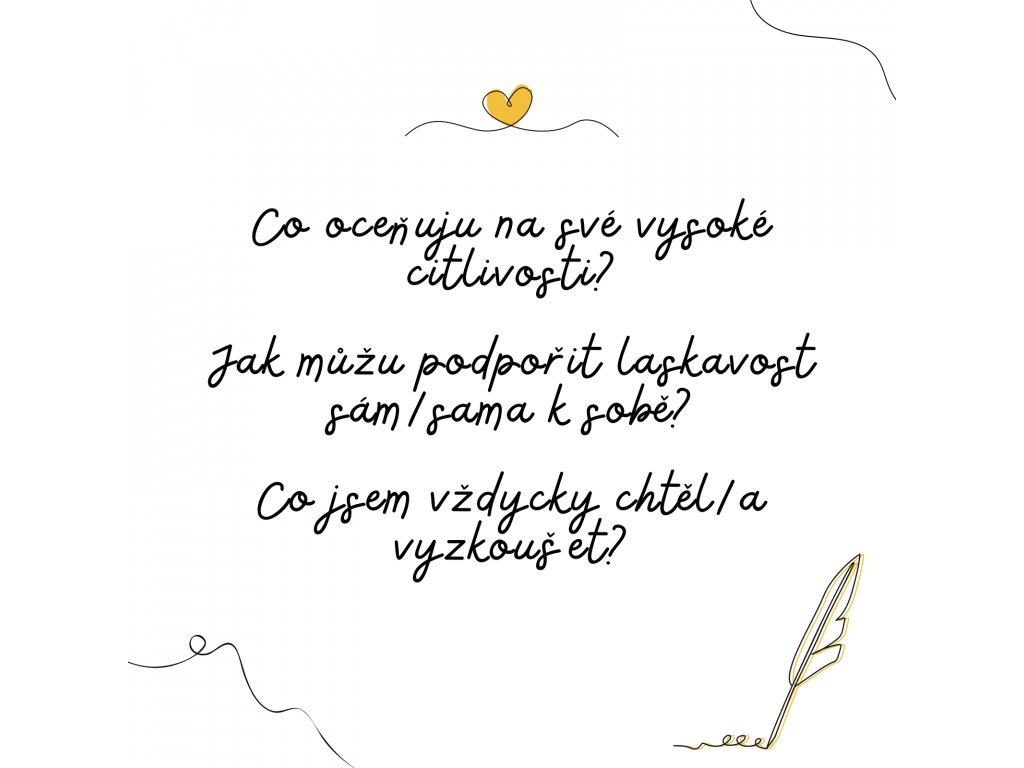 Co oceňuju na své vysoké
citlivosti?
Jak můžu podpořit laskavost
sám/sama k sobě?
Co jsem vždycky chtěl/a
vyzkoušet?